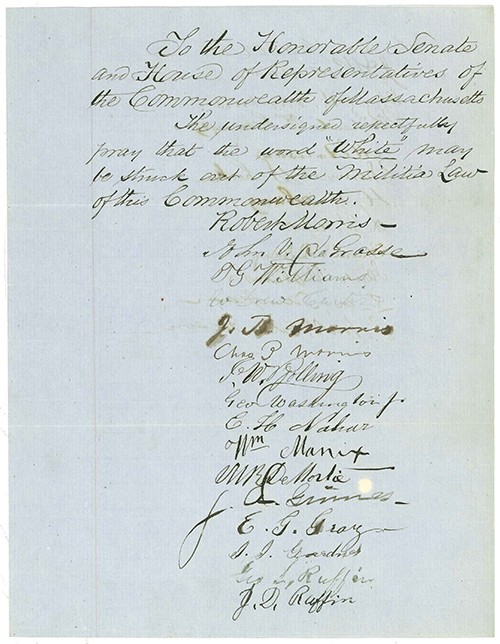 To the Honorable Senate
and House of Representatives of
the Commonwealth of Massachusetts
The undersigned respectfully
pray that the word "White" may
be struck out of the Militia Law
of this Commonwealth.
Robert Morris
John V. DeGrasse
T G Williams
J. B. Morris
Chas P Morris
J. W. Bolling
Geo Washington jr
C. H. Nahar
Wm Mannix
Wm R DeMortie
J. A. Grimes
E. G. Gray
Gardner
Geo L. Ruffin
J. D. Ruffin